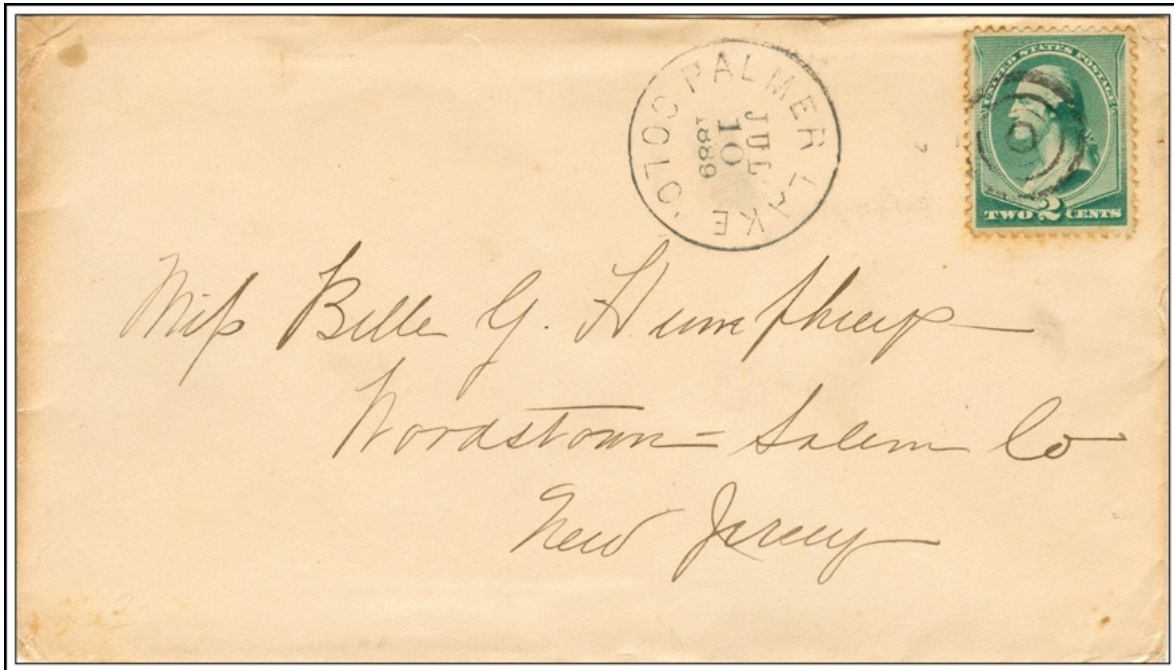 PALMER LAKE COLO.
JUL
10
1889
UNITED STATES POSTAGE
TWO 2 CENTS
Miss Belle G. Humphreys
Woodstown = Salem Co
New Jersey